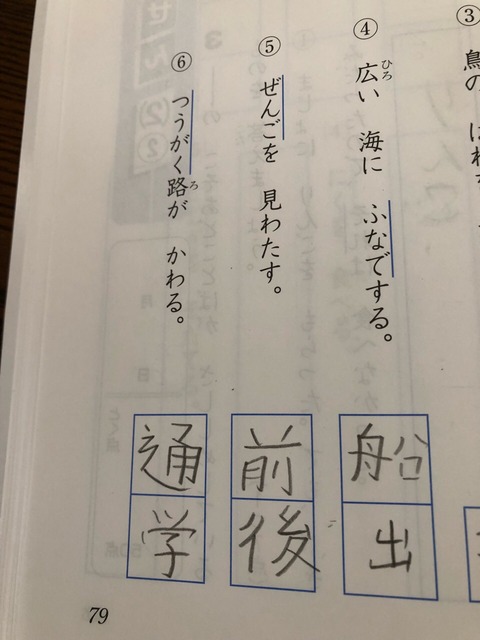 ③
鳥の はねを
④ 広い 海に ふなでする。
ひろ
船出
⑤ ぜんごを 見わたす。
前後
⑥ つうがく路が かわる。
ろ
通学
79